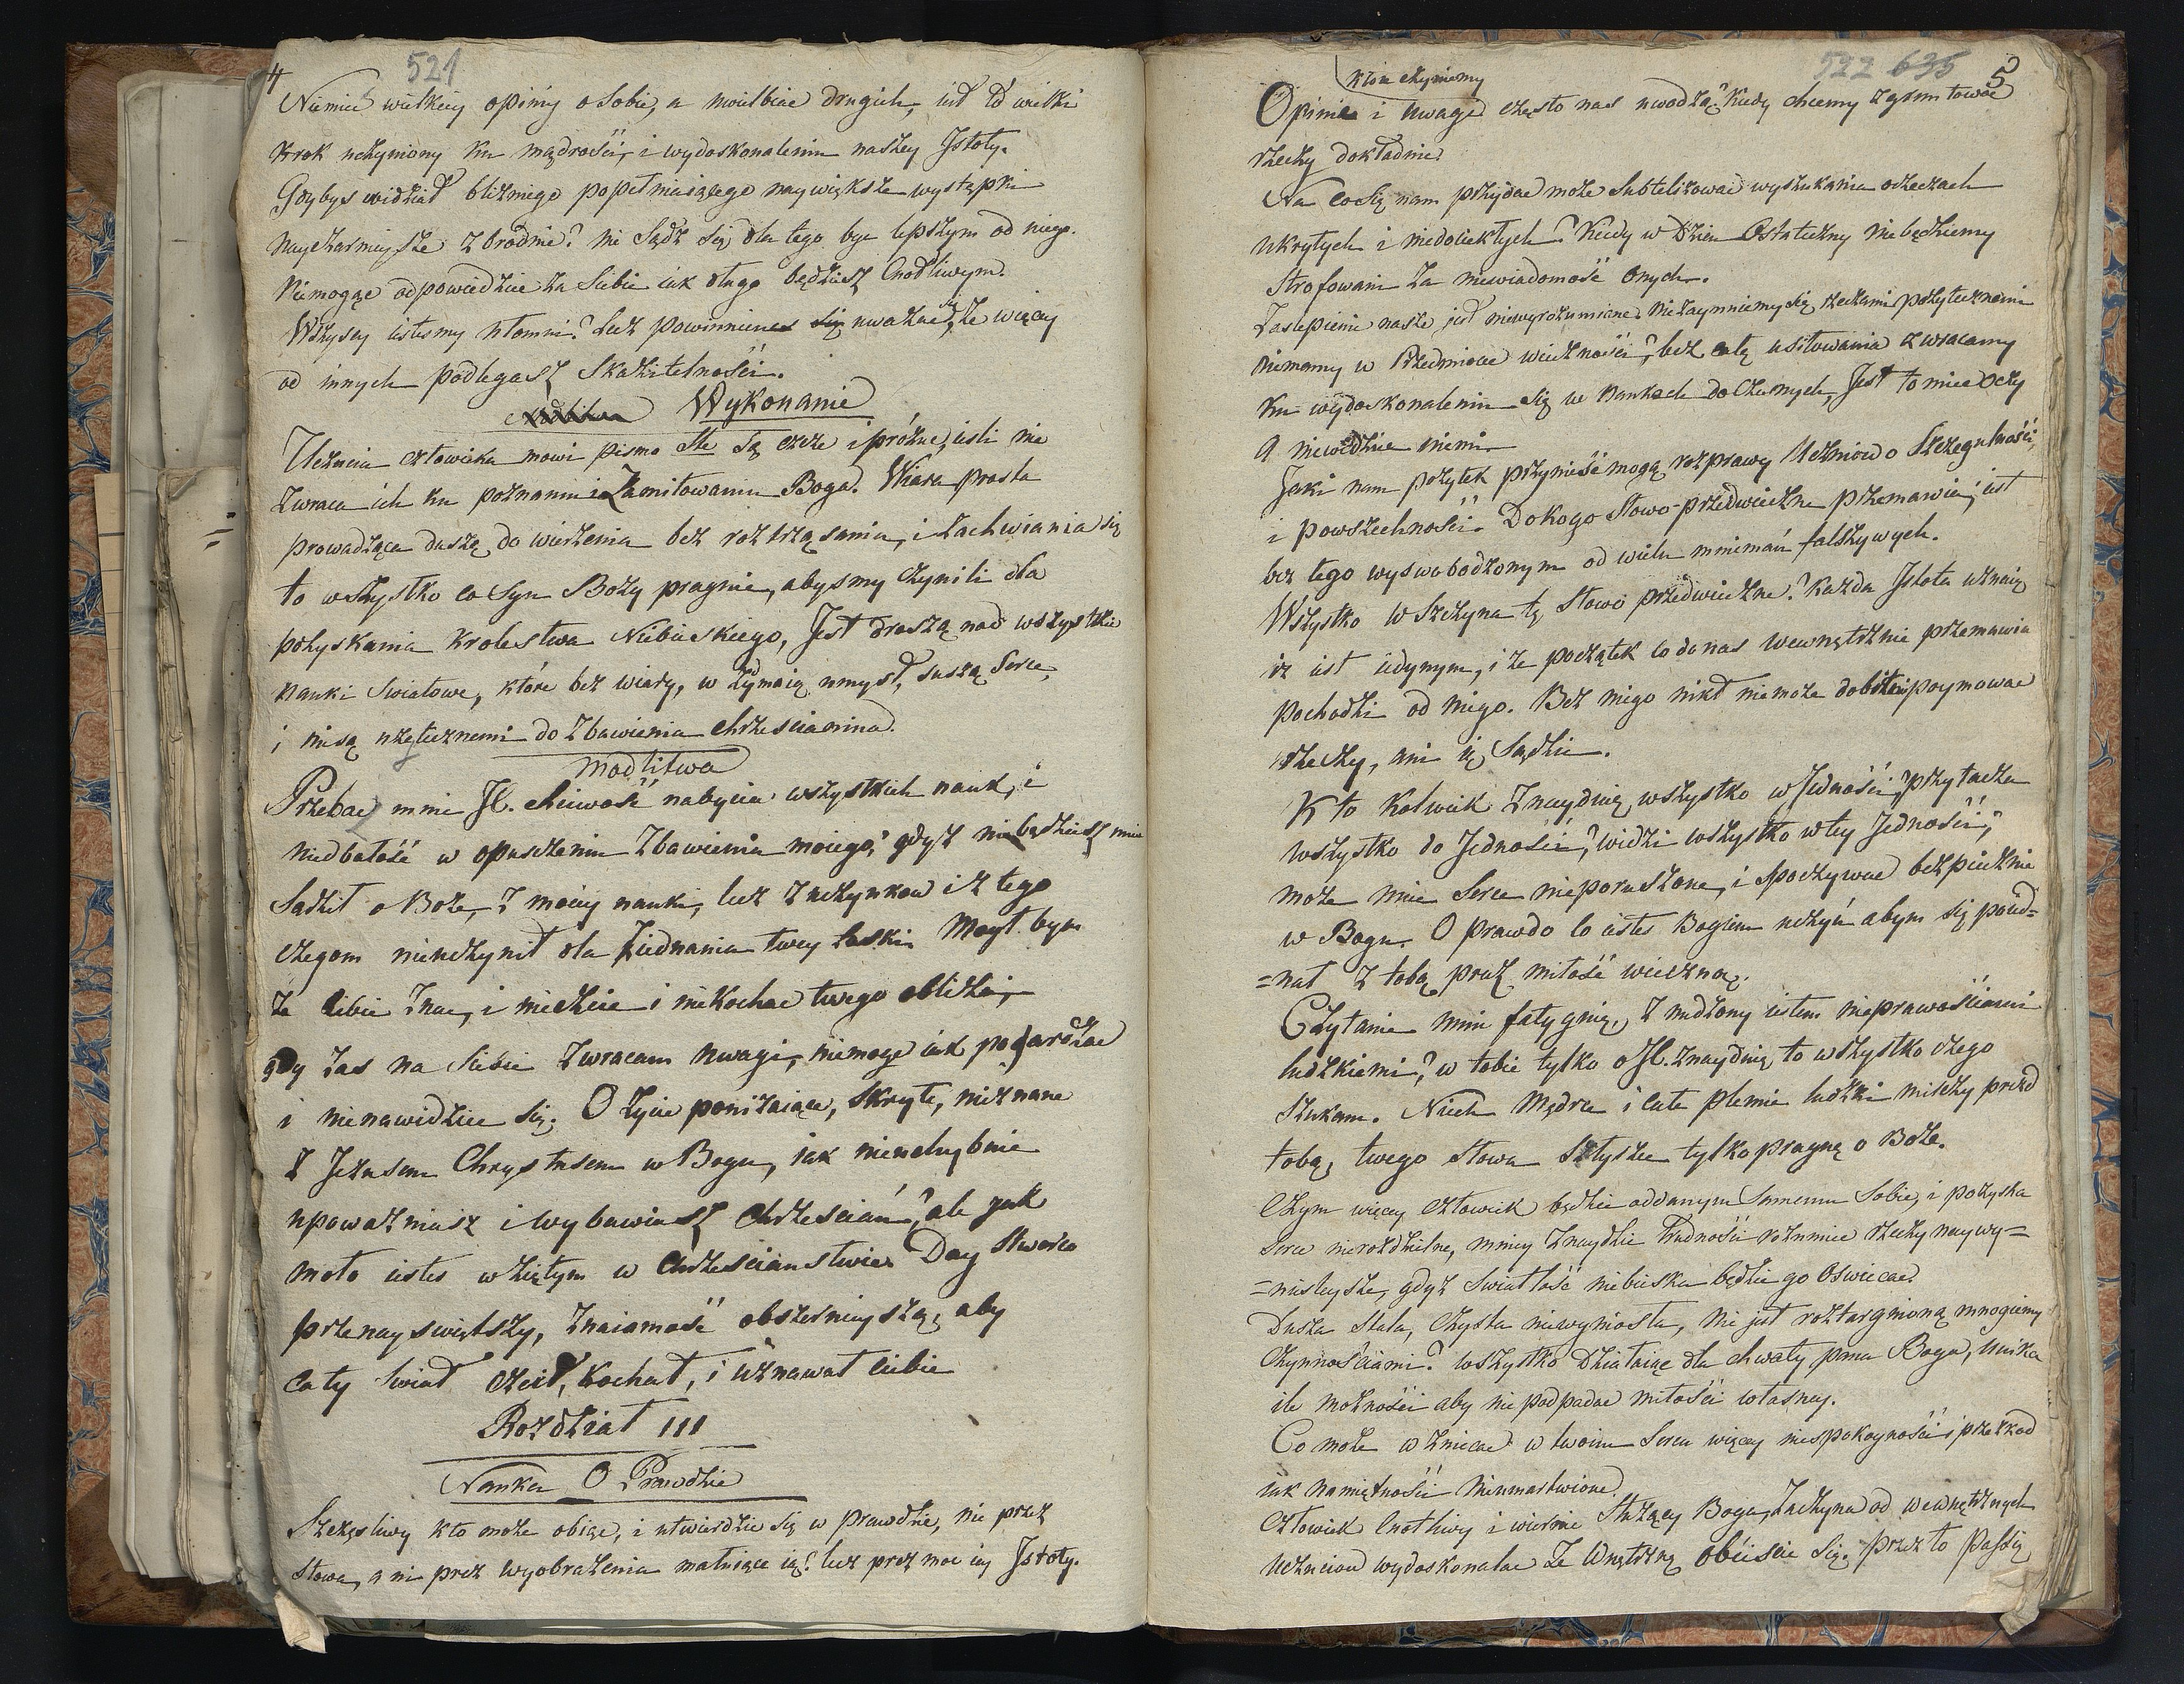 4
521
Niemieć wielkiey opiniy o Sobie, a uwielbiać drugich, iest to wielki
krok uczyniony ku mądrości, i wydoskonaleniu naszey Jstoty.
Gdybys widział bliźniego popełniaiącego naywiększe występki
nayczarnieysze zbrodnie? nie Sądz się dla tego być lepszym od niego.
Niemogąc odpowiedzieć za Siebie iak długo będziesz Cnotliwym.
Wszyscy iestesmy ułomni? Lecz powinienes się uważać, że więcey
od innych podlegasz Skazitelności.
Modlitwa Wykonanie
Uczucia człowieka mowi pismo Ste Są czcze i próżne, iesli nie
zwraca ich ku poznaniu i Zamiłowaniu Boga. Wiara prosta
prowadząca duszę do wierzenia bez roztrząsania, i zachwiania się
to wszystko co Syn Boży pragnie, abysmy czynili dla
pozyskania krolestwa Niebieskiego, Jest droszą nad wszystkie
nauki Swiatowe, które bez wiary, wzdymaią umysł, suszą Serce,
i niesą użytecznemi do Zbawienia chrzescianina.
modlitwa
Przebacz mnie JC. chciwość nabycia wszystkich nauk, i
niedbałość w opuszczeniu Zbawienia moiego; gdyż niebędziesz mnie
Sądził o Boże, z moiey nauki, lecz z uczynkow i z tego
czegom nieuczynił dla Ziednania twey łaski. Mogł bym
że Ciebie znać, i nie czcić i niekochać twego oblicza,
gdy zas na Siebie zwracam uwagę, niemogę iak pogardzać
i nienawidzieć się. O Życie poniżaiące, Skryte, nieznane
z Jezusem Chrystusem w Bogu, iak nieuchybnie
upoważniasz i wybawiasz Chrzescian, ale jak
mało iestes wziętym w Chrzescianstwie. Day Stworco
przenayswiętszy, Znaiomość obszernieyszą, aby
cały Swiat czcił, kochał, i uznawał ciebie
Rozdział III
Nauka O Prawdzie
Szczęsliwy kto może obiąć, i utwierdzić się w prawdzie, nie przez
słowa, a ni przez wyobrażenia malniące ią? lecz przez moc iey Jstoty.
522 635
5
które czyniemy
Opinie i uwagi często nas uwodzą? Kiedy chcemy zgruntować
rzeczy dokładnie?
Na co Się nam przydać może Subtelizować wyszukania o rzeczach
ukrytych i niedociekłych? Kiedy w Dzien Ostateczny niebędziemy
Strofowani za niewiadomość onych.
Zaslepienie nasze jest niewyrozumiane. Niezaymuiemy się rzeczami pożytecznemi
niemamy w Przedmiocie wieczności, bez całą usiłowania zwracamy
ku wydoskonaleniu się w naukach doczesnych, Jest to mieć oczy
a niewidzieć niemi.
Jaki nam pożytek przynieść mogą rozprawy Uczniow o Szczegulności,
i powszechności. Do kogo Słowo-przedwieczne przemawia, iest
bez tego wyswobodzonym od wielu mniemań fałszywych.
Wszystko Wszczyna tę Słowo przedwieczne? Każda Jstota uznaie
iż iest iedynym, i że początek co do nas wewnętrznie przemawia
pochodzi od niego. Bez niego nikt niemoże dobitniepoymować
rzeczy, ani ię Sądzić.
Kto kolwiek Znayduie, wszystko w Jedności, przytacza
wszystko do Jedności, widzi wszystko w tey Jedności,
może mieć Serce nieporuszone, i Spoczywać bezpiecznie
w Bogu. O prawdo co iestes Bogiem uczyń abym się poied=
=nał z tobą przez miłość wieczną.
Czytanie mnie fatyguie, z nudzony iestem nieprawościami
ludzkiemi, w tobie tylko o JC. znayduię to wszystko czego
Szukam. Niech Mędrce i całe plemie ludzkie milczy przed
tobą, twego Słowa Słyszeć tylko pragnę o Boże.
Czym więcey człowiek będzie oddanym Samemu Sobie, i pozyska
Serce nierozdzielne, mniey znaydzie trudności rozumieć rzeczy naywy=
=nieslysze, gdyż Swiatłość niebieska będzie go Oswiecać.
Dusza Stała, Czysta niewyniosła, nie jest roztargnioną mnogiemy
Czynnościami? wszystko Działaiąc dla chwały pana Boga, Unika
ile możności aby nie podpadać miłości własney.
Co może wzniecać w twoim Sercu więcey niespokoyności i przeszkod
iak namiętności nieumartwione.
Człowiek Cnotliwy i wiernie Służący Bogu, Zaczyna od wewnętrznych
Uczuciow wydoskonalać Ze Wnętrzne obeiscie się. przez to passię